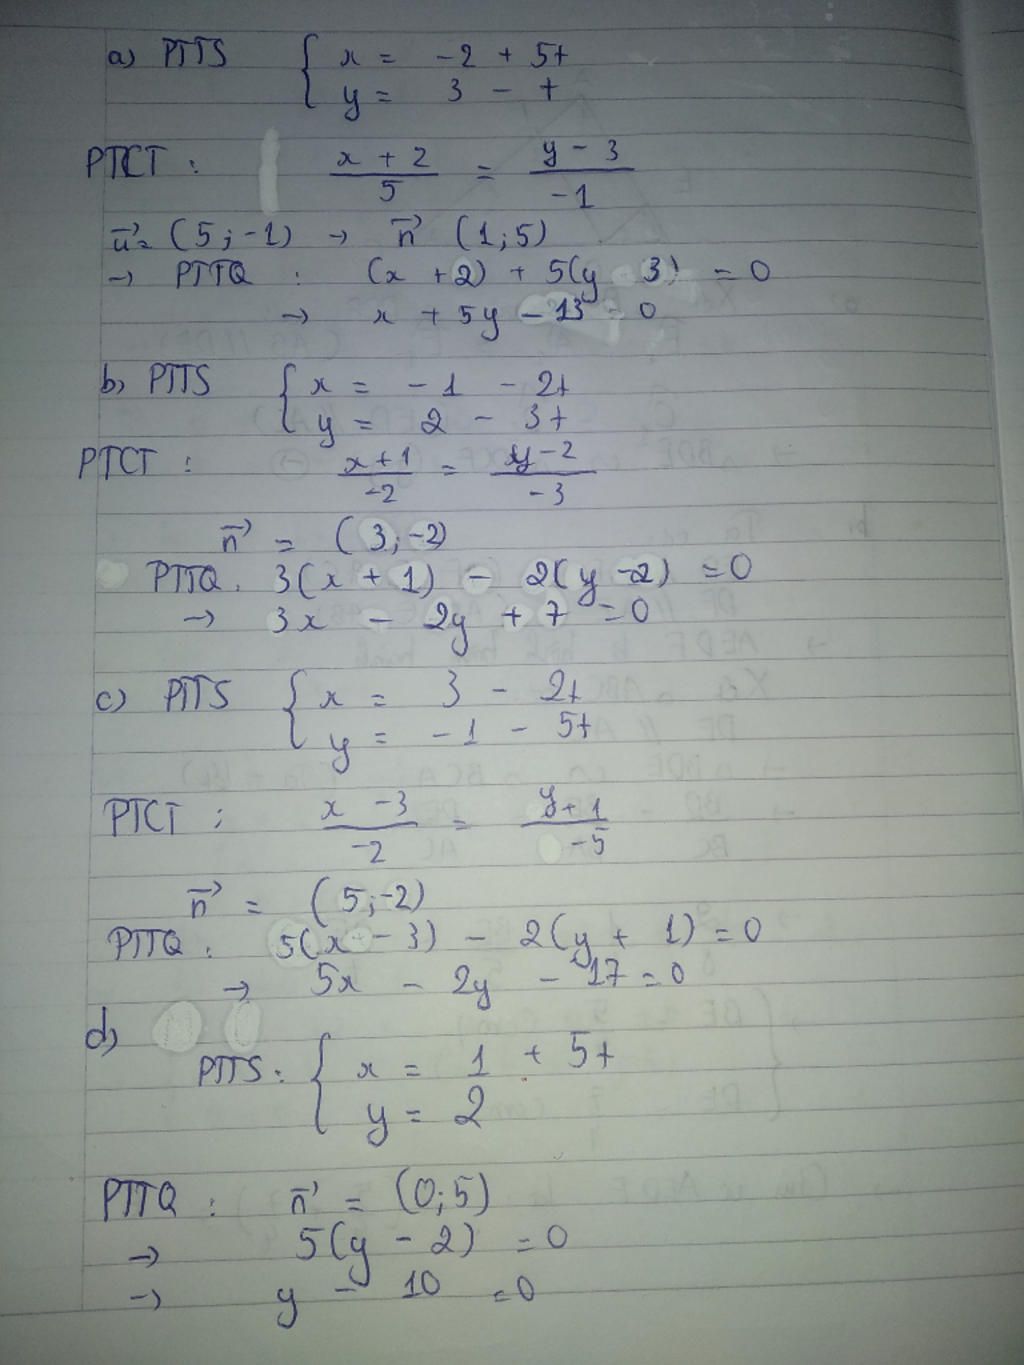 a) PTTS { x = -2 + 5t
y = 3 - t
PTCT : x + 2 / 5 = y - 3 / -1
u⃗ = (5;-1) → n⃗ (1;5)
→ PTTQ : (x + 2) + 5(y 3) = 0
→ x + 5y - 13 = 0
b, PTTS { x = -1 - 2t
y = 2 - 3t
PTCT : x+1 / -2 = y-2 / -3
n⃗ = (3;-2)
PTTQ : 3(x + 1) - 2(y -2) = 0
→ 3x - 2y + 7 = 0
c) PTTS { x = 3 - 2t
y = -1 - 5t
PTCT : x - 3 / -2 = y+1 / -5
n⃗ = (5;-2)
PTTQ : 5(x - 3) - 2(y + 1) = 0
→ 5x - 2y - 17 = 0
d)
PTTS : { x = 1 + 5t
y = 2
PTTQ : n⃗ = (0;5)
→ 5(y - 2) = 0
→ y - 10 = 0